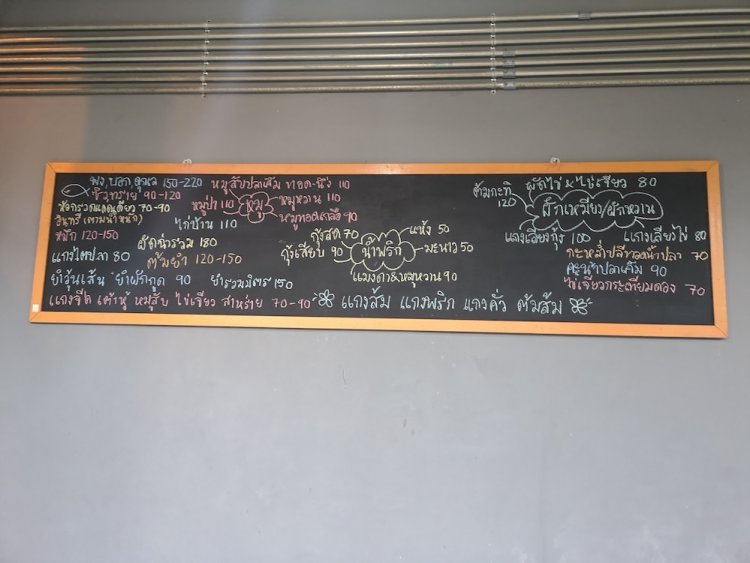 150-220
หมูสับปลาเค็ม ทอด-นึ่ง 110
90-120
70-90
อินทรี (ตามน้ำหนัก)
หมึก 120-150
แกงไตปลา 80
ไก่บ้าน 110
ผัดฉ่ารวม 180
ต้มยำ 120-150
ยำวุ้นเส้น ยำผักกูด 90
ยำรวมมิตร 150
แกงจืด เต้าหู้ หมูสับ ไข่เจียว สาหร่าย 70-90
หมู
หมูป่า 110
หมูหวาน 110
หมูทอดเกลือ 90
น้ำพริก
กุ้งสด 70
กุ้งเสียบ 90
แห้ง 50
มะนาว 50
แมงดา&หมูหวาน 90
แกงส้ม แกงพริก แกงคั่ว ต้มส้ม
ผักเหมียง/ผักหวาน
ต้มกะทิ
120
ผัดไข่ & ไข่เจียว 80
แกงเลียงกุ้ง 100
แกงเลียงไข่ 80
กะหล่ำปลีทอดน้ำปลา 70
คะน้าปลาเค็ม 90
ไข่เจียวกระเทียมดอง 70